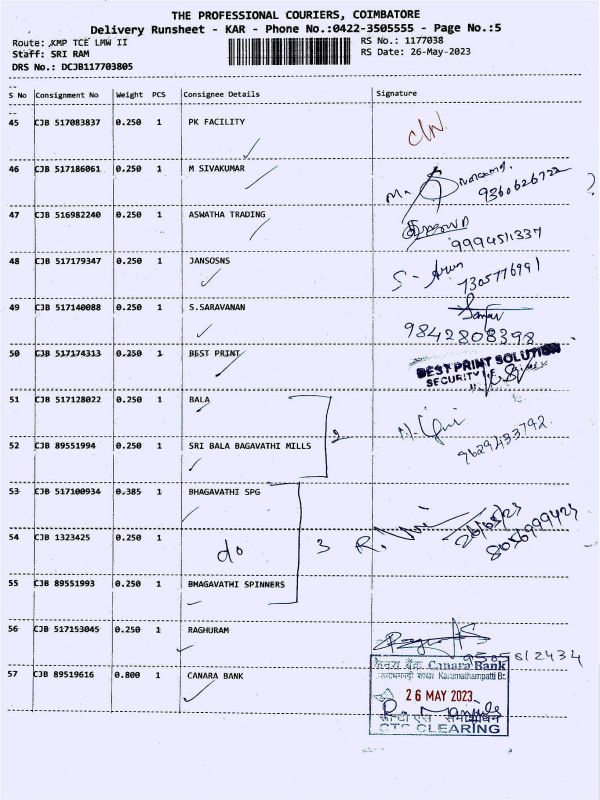 THE PROFESSIONAL COURIERS, COIMBATORE
Delivery Runsheet - KAR - Phone No.:0422-3505555 - Page No.:5
Route: KMP TCE LMW II
RS No.: 1177038
Staff: SRI RAM
RS Date: 26-May-2023
DRS No.: DCJB117703805
S No Consignment No Weight PCS Consignee Details Signature
45 CJB 517083837 0.250 1 PK FACILITY
46 CJB 517186061 0.250 1 M SIVAKUMAR 9360626722 ?
47 CJB 516982240 0.250 1 ASWATHA TRADING
9994511337
48 CJB 517179347 0.250 1 JANSOSNS S- Arun
7305776991
49 CJB 517140088 0.250 1 S.SARAVANAN
9842808398
50 CJB 517174313 0.250 1 BEST PRINT BEST PRINT SOLUTION
SECURITY
51 CJB 517128022 0.250 1 BALA
2 9629433792
52 CJB 89551994 0.250 1 SRI BALA BAGAVATHI MILLS
53 CJB 517100934 0.385 1 BHAGAVATHI SPG
26/05/23
54 CJB 1323425 0.250 1 do 3 8056999423
55 CJB 89551993 0.250 1 BHAGAVATHI SPINNERS
56 CJB 517153045 0.250 1 RAGHURAM
9505512434
केनरा बैंक Canara Bank
Karumathampatti Br.
57 CJB 89519616 0.800 1 CANARA BANK 26 MAY 2023
CTS CLEARING